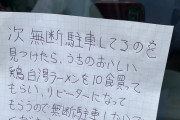 次 無断駐車してるのを
見つけたら、うちのおいしい
鶏白湯ラーメンを10食買って
もらい、リピーターになって
もらうので無断駐車しないで